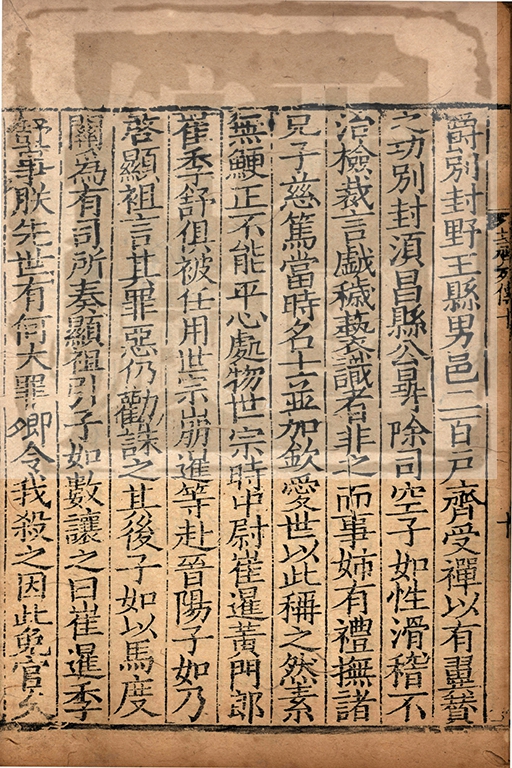 爵別封野王縣男邑二百戸齊受禪以有翼賛
之功別封湏昌縣公尋除司空子如性滑稽不
治檢裁言戯穢䙝識者非之而事姊有禮撫諸
兄子慈篤當時名士並加欽愛世以此稱之然素
無鯁正不能平心處物世宗時中尉崔暹黃門郎
崔季舒俱被任用世宗崩暹等赴晉陽子如乃
啓顯祖言其罪惡仍勸誅之其後子如以馬度
關為有司所奏顯祖引子如數讓之曰崔暹季
舒事朕先世有何大罪卿令我殺之因此免官久